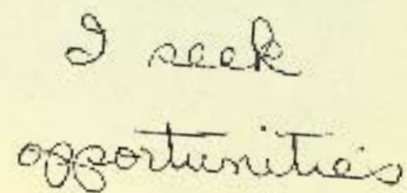 I seek
opportunities